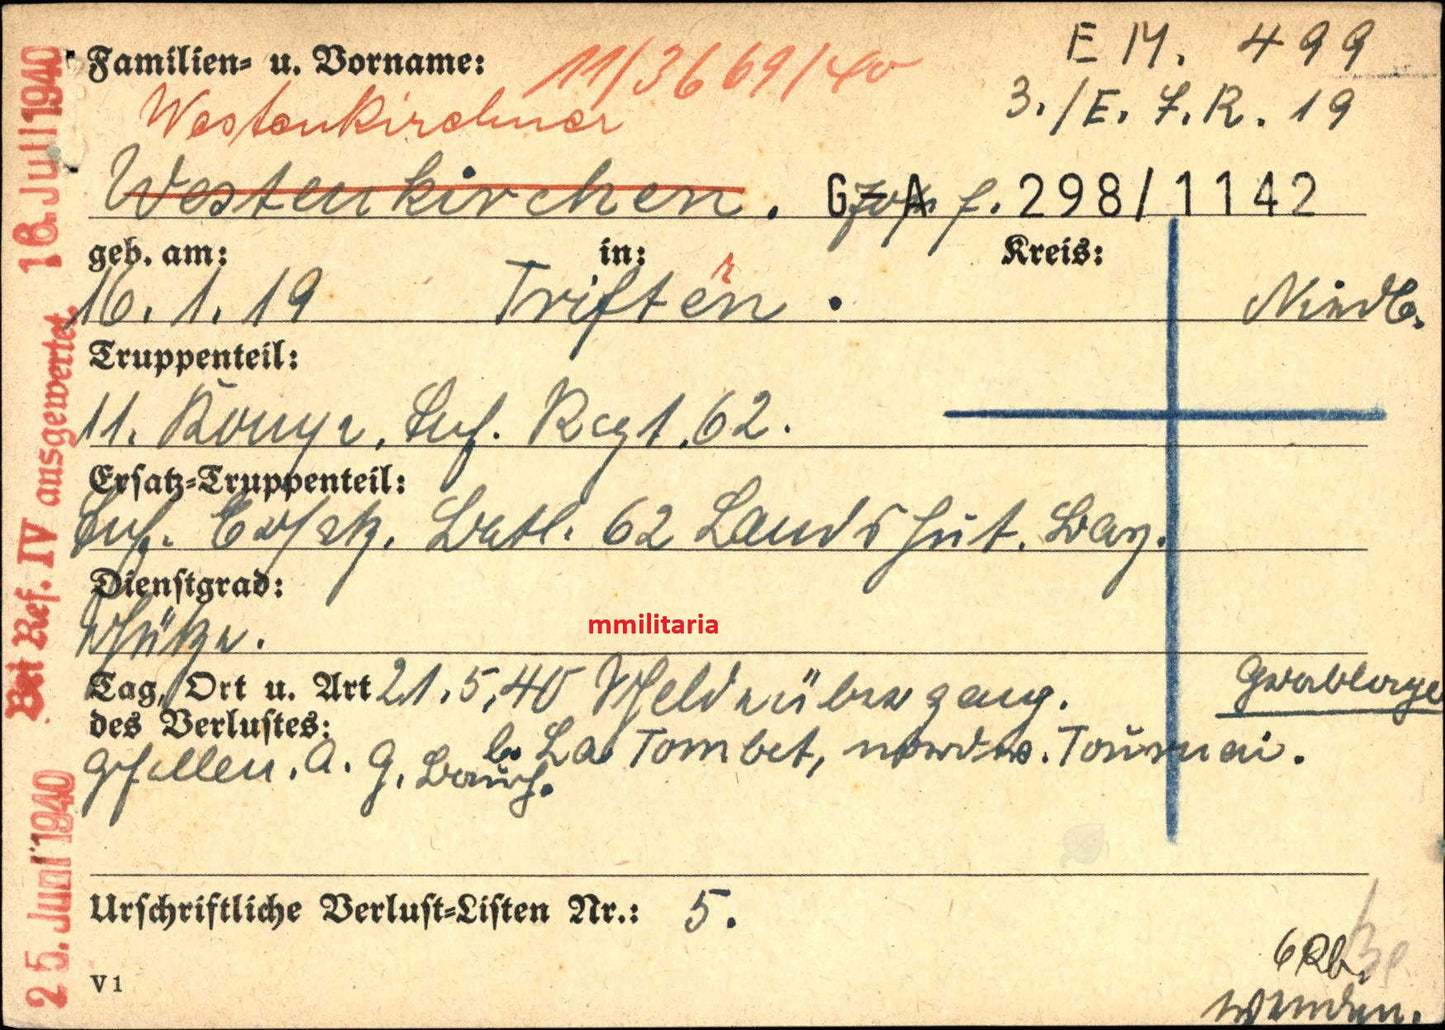 Familien- u. Vorname:
11/3669/40
E M. 499
3./E. J.R. 19
Westenkirchner
Westenkirchen. Josef. G = A 298/1142
geb. am: in: Kreis:
16. 1. 19 Triftern. Niedb.
Truppenteil:
11. Komp., Inf. Regt. 62.
Ersatz-Truppenteil:
Inf. Ersatz. Batl. 62 Landshut. Bay.
Dienstgrad:
Schütze.
mmilitaria
Tag, Ort u. Art 21.5.40 Scheldeübergang. Grablage
des Verlustes:
b. La Tombet, nordw. Tournai.
Gefallen. A. G. Bauch.
Urschriftliche Verlust-Listen Nr.: 5.
V 1
wenden.
25. Juni 1940
Bei Ref. IV ausgewertet.
16. Juli 1940